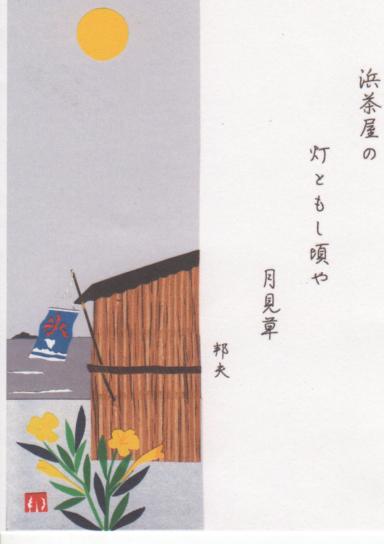 浜茶屋の
灯ともし頃や
月見草
邦夫
氷